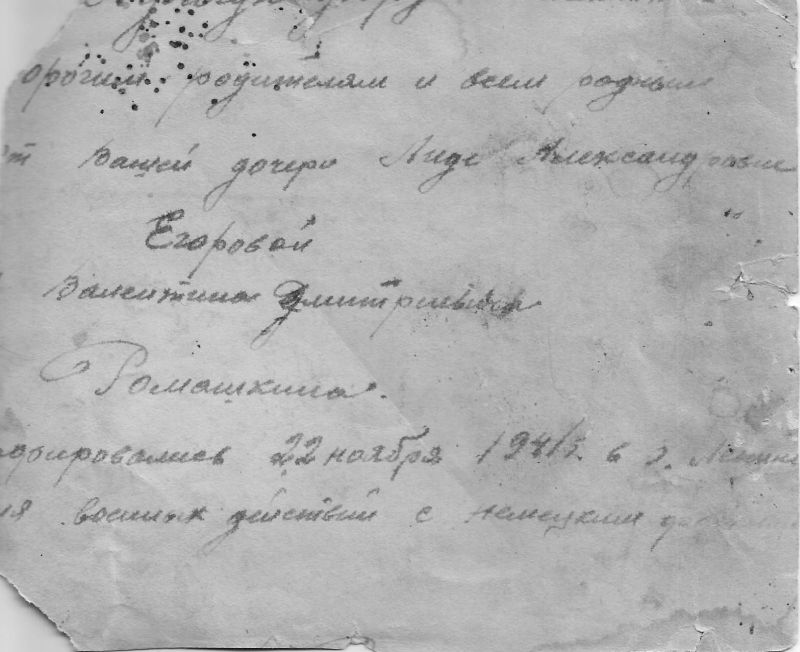 орогим родителям и всем родным
от Вашей дочери Лиде Александровне
Егоровой
Валентина Дмитриевна
Ромашкина.
22 ноября 1941 г. в г. Ленин
ия военных действий с немецким